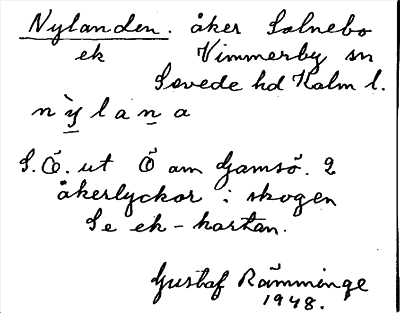 Nylanden. åker Solnebo
ek Vimmerby sn
Sevede hd Kalm l.
nỳlana
S.Ö. ut Ö am Gamsö. 2
åkerlyckor i skogen
Se ek-kartan.
Gustaf Rämminge
1948.